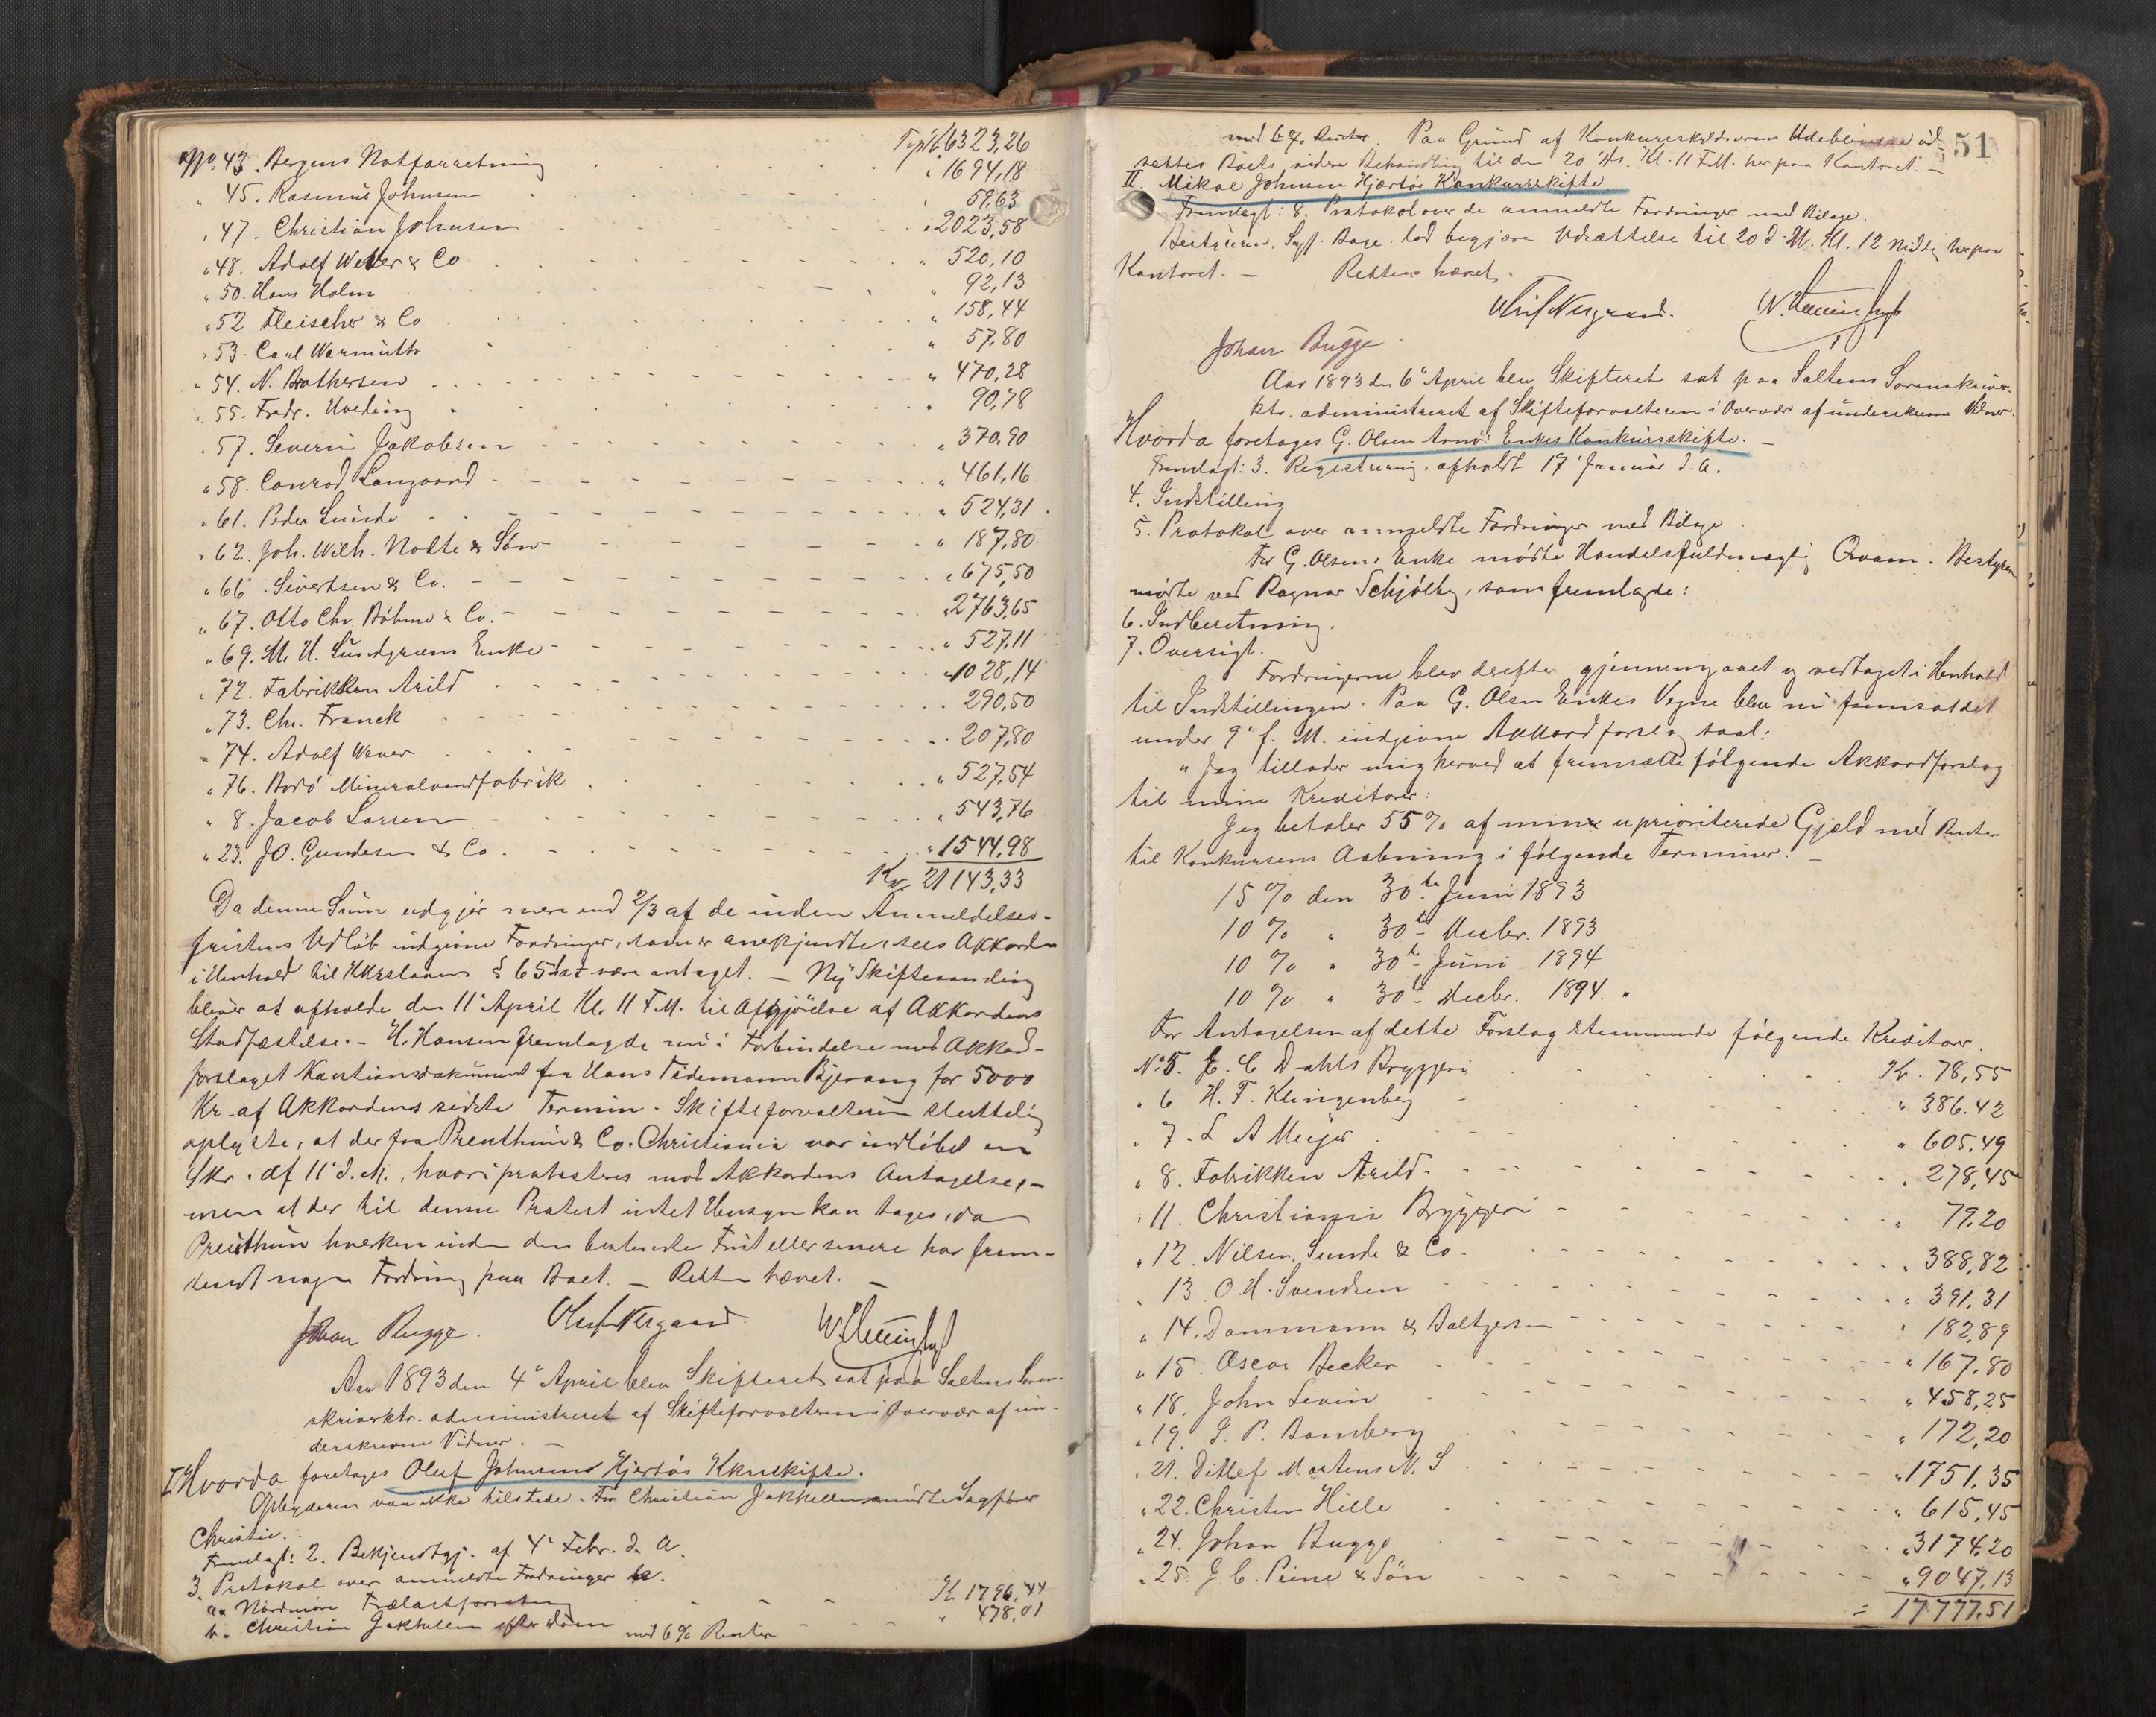 6323,26
No. 43. Bergens Notforretning " 1694,18
" 45. Rasmus Johnsen " 59,63
" 47. Christian Johnsen " 2023,58
" 48. Adolf Wever & Co " 520,10
" 50. Hans Holm " 92,13
" 52 Fleischer & Co " 158,44
" 53. Carl Warmuth " 57,80
" 54. N. Brothersen " 470,28
" 55. Fredr. Hveding " 90,78
" 57. Severin Jakobsen " 370,90
" 58. Conrad Langaard " 461,16
" 61. Peder Sunde " 524,31
" 62. Joh. Wilh. Nolte & Søn " 187,80
" 66. Sivertsen & Co. " 675,50
" 67. Otto Chr. Böhme & Co. " 2763,65
" 69. M. H. Lundgreens Enke " 527,11
" 72. Fabrikken Arild " 1028,14
" 73. Chr. Franck " 290,50
" 74. Adolf Wever " 207,80
" 76. Bodø Mineralvandfabrik " 527,54
" 8. Jacob Larsen " 543,76
" 23. JO. Gundersen & Co. " 1544,98
Kr. 21143,33
Da denne Sum udgjør mere end 2/3 af de inden Anmeldelses-
fristens Udløb indgivne Fordringer, som er anerkjendte, sees Akkorden
i Henhold til Kkrslovens § 65 at være antaget. – Ny Skiftesamling
bliver at afholde den 11' April Kl. 11 F.M. til Afgjörelse af Akkordens
Stadfæstelse. – H. Hansen fremlagde nu i Forbindelse med Akkord-
forslaget Kautionsdokument fra Hans Tidemann Bjerang for 5000
Kr. af Akkordens sidste Termin. Skifteforvalteren sluttelig
oplyste, at der fra Preuthun & Co. Christiania var indløbet en
Skr. af 11' d. M., hvori protesteres mod Akkordens Antagelse, –
men at der til denne Protest intet Hensyn kan tages, da
Preuthun hverken inden den bestemte Frist eller senere har frem-
sendt nogen Fordring paa Boet. – Retten hævet. –
Johan Bugge. Oluf Nergaard.
Aar 1893 den 4' April blev Skifteret sat paa Saltens Soren-
skriverktr. administreret af Skifteforvalteren i Overvær af un-
derskrevne Vidner. –
I Hvorda foretages Oluf Johnsens Hjertøs Kkrsskifte.
Opbyderen var ikke tilstede. For Christian Jakhelln mødte Sagfører
Christie.
Fremlagt: 2. Bekjendtgj. af 4' Febr. d. A.
3. Protokol over anmeldte Fordringer
a. Nordmøre Trælastforretning Kr 1796,44
b. Christian Jakhelln efter Dom " 478,01
med 6% Renter
51
med 6% Renter. Paa Grund af Konkursskyldnerens Udeblivelse ud-
settes Boets videre Behandling til den 20 ds. Kl. 11 F.M. her paa Kontoret. –
II Mikal Johnsen Hjertøs Konkursskifte
Fremlagt: 8. Protokol over de anmeldte Fordringer med Bilage.
Bestyreren, Sagf. Bage lod begjære Udsættelse til 20 d. M. Kl. 12 Midd. her paa
Kontoret. – Retten hævet.
Oluf Nergaard.
Johan Bugge.
Aar 1893 den 6' April blev Skifteret sat paa Saltens Sorenskriver-
ktr. administreret af Skifteforvalteren i Overvær af underskrevne Vidner.
Hvorda foretages G. Olsen Arnø's Enkes Konkursskifte. –
Fremlagt: 3. Registrering, afholdt 17' Januar d. A.
4. Indstilling
5. Protokol over anmeldte Fordringer med Bilage.
For G. Olsens Enke mødte Handelsfuldmægtig Qvam. Bestyren
mødte ved Ragnar Schjölberg, som fremlagde:
6. Indberetning.
7. Oversigt.
Fordringerne blev derefter gjennemgaaet og vedtaget i Henhold
til Indstillingen. Paa G. Olsen Enkes Vegne blev nu fremsat det
under 9' f. M. indgivne Akkordforslag saal:
" Jeg tillader mig herved at fremsætte følgende Akkordforslag
til mine Kreditorer:
Jeg betaler 55% af min uprioriterede Gjæld med Renter
til Konkursens Aabning i følgende Terminer: –
15 % den 30te Juni 1893
10 % " 30te Decbr. 1893
10 % " 30te Juni 1894
10 % " 30te Decbr. 1894. "
For Antagelsen af dette Forslag stemmende følgende Kreditorer.
No. 5. E. C Dahls Bryggeri Kr. 78,55
" 6 H. F. Klingenberg " 386.42
" 7. L A Meyer " 605,49
" 8. Fabrikken Arild. " 278,45
" 11. Christiania Bryggeri " 79,20
" 12. Nilsen, Sunde & Co. " 388,82
" 13 O. H. Svendsen " 391,31
" 14. Dammann & Baltzersen " 182,89
" 15. Oscar Becker " 167,80
" 18. John Levin " 458,25
" 19. S. P. Bamberg " 172,20
" 21. Ditlef Martens N. S. " 1751,35
" 22. Christen Hille " 615,45
" 24. Johan Bugge " 3174,20
" 25. J. C. Piene & Søn " 9047,13
= 17777,51